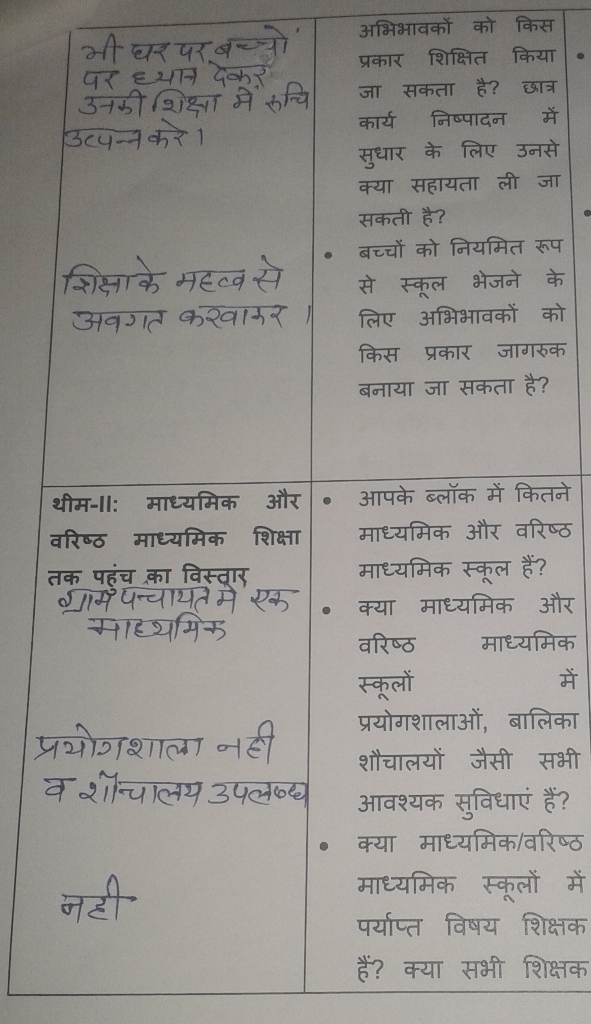 भी घर पर बच्चों
पर ध्यान देकर
उनकी शिक्षा में रूचि
उत्पन्न करे।
शिक्षा के महत्व से
अवगत करवाकर।
अभिभावकों को किस
प्रकार शिक्षित किया
जा सकता है? छात्र
कार्य निष्पादन में
सुधार के लिए उनसे
क्या सहायता ली जा
सकती है?
• बच्चों को नियमित रूप
से स्कूल भेजने के
लिए अभिभावकों को
किस प्रकार जागरुक
बनाया जा सकता है?
थीम-II: माध्यमिक और
वरिष्ठ माध्यमिक शिक्षा
तक पहुंच का विस्तार
ग्राम पंचायत मे एक
माध्यमिक
प्रयोगशाला नही
व शौचालय उपलब्ध
नही
• आपके ब्लॉक में कितने
माध्यमिक और वरिष्ठ
माध्यमिक स्कूल हैं?
• क्या माध्यमिक और
वरिष्ठ माध्यमिक
स्कूलों में
प्रयोगशालाओं, बालिका
शौचालयों जैसी सभी
आवश्यक सुविधाएं हैं?
• क्या माध्यमिक/वरिष्ठ
माध्यमिक स्कूलों में
पर्याप्त विषय शिक्षक
हैं? क्या सभी शिक्षक